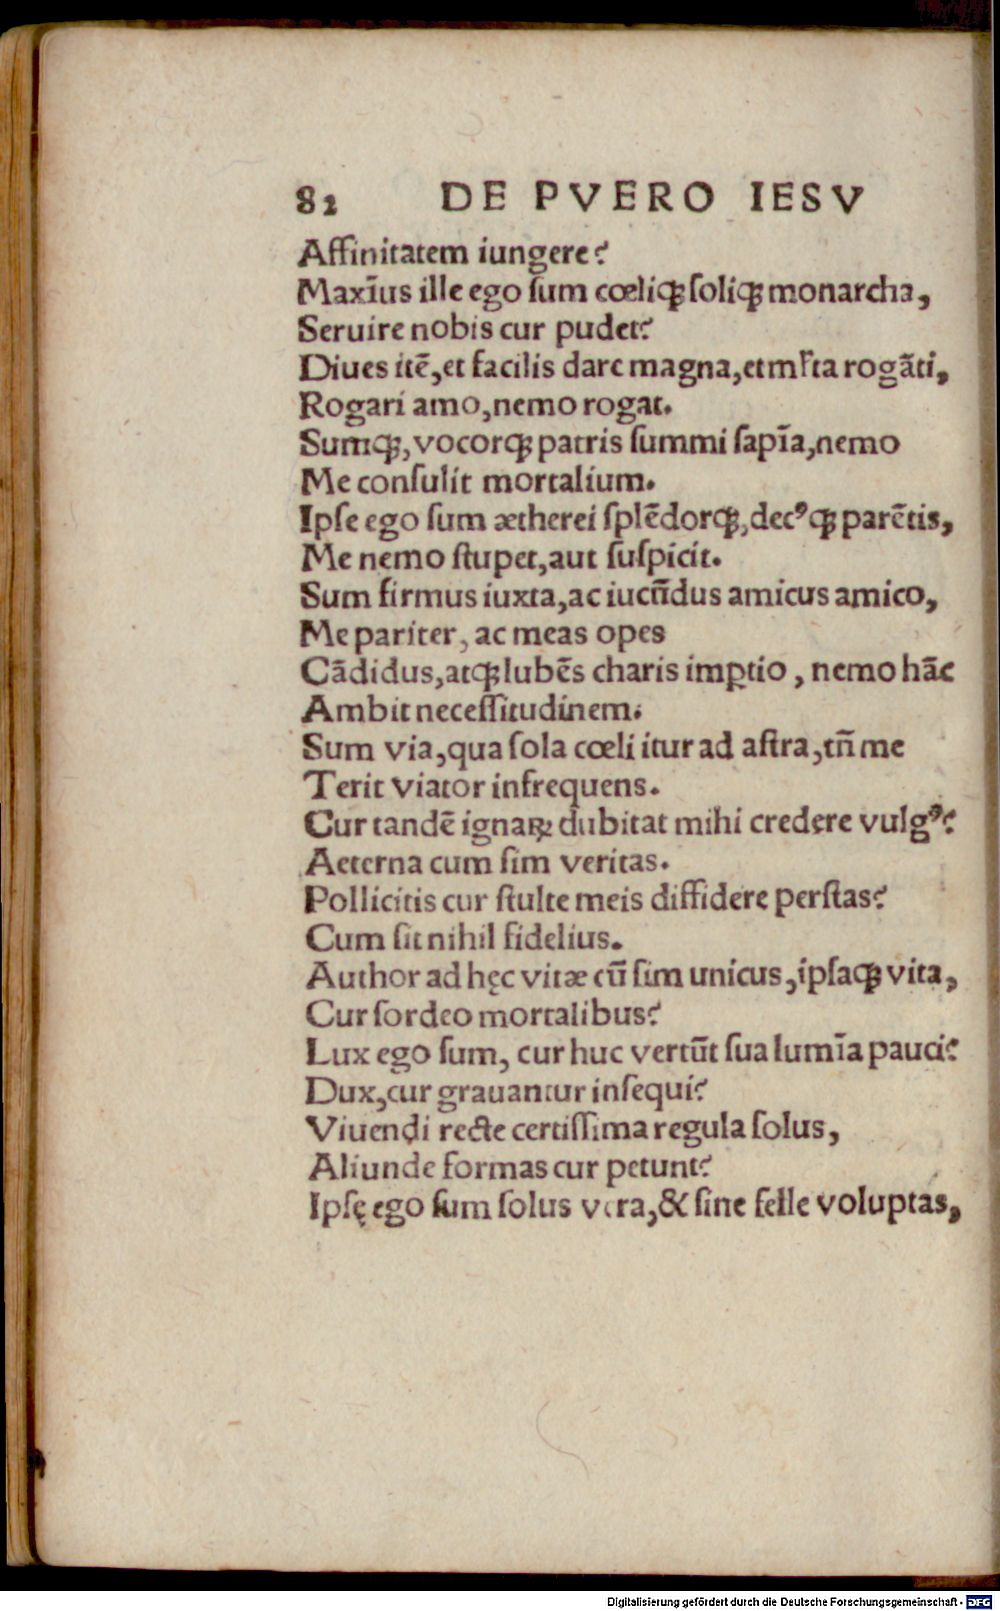 82 DE PVERO IESV
Affinitatem iungere?
Maxīus ille ego ſum cœliqꝫ ſoliqꝫ monarcha,
Seruire nobis cur pudet?
Diues itē, et facilis dare magna, et ml̄ta rogāti,
Rogari amo, nemo rogat.
Sumqꝫ, vocorqꝫ patris ſummi ſapīa, nemo
Me conſulit mortalium.
Ipſe ego ſum ætherei ſplēdorqꝫ, decꝰqꝫ parētis,
Me nemo ſtupet, aut ſuſpicit.
Sum firmus iuxta, ac iucūdus amicus amico,
Me pariter, ac meas opes
Cādidus, atqꝫ lubēs charis imꝑtio, nemo hāc
Ambit neceſſitudinem.
Sum via, qua ſola cœli itur ad aſtra, tn̄ me
Terit viator infrequens.
Cur tandē ignaꝝ dubitat mihi credere vulgꝰ?
Aeterna cum ſim veritas.
Pollicitis cur ſtulte meis diffidere perſtas?
Cum ſit nihil fidelius.
Author ad hęc vitæ cū ſim unicus, ipſaqꝫ vita,
Cur ſordeo mortalibus?
Lux ego ſum, cur huc vertūt ſua lumīa pauci?
Dux, cur grauantur inſequi?
Viuendi recte certiſſima regula ſolus,
Aliunde formas cur petunt?
Ipſę ego ſum ſolus vera, & ſine felle voluptas,
Digitalisierung gefördert durch die Deutsche Forschungsgemeinschaft - DFG